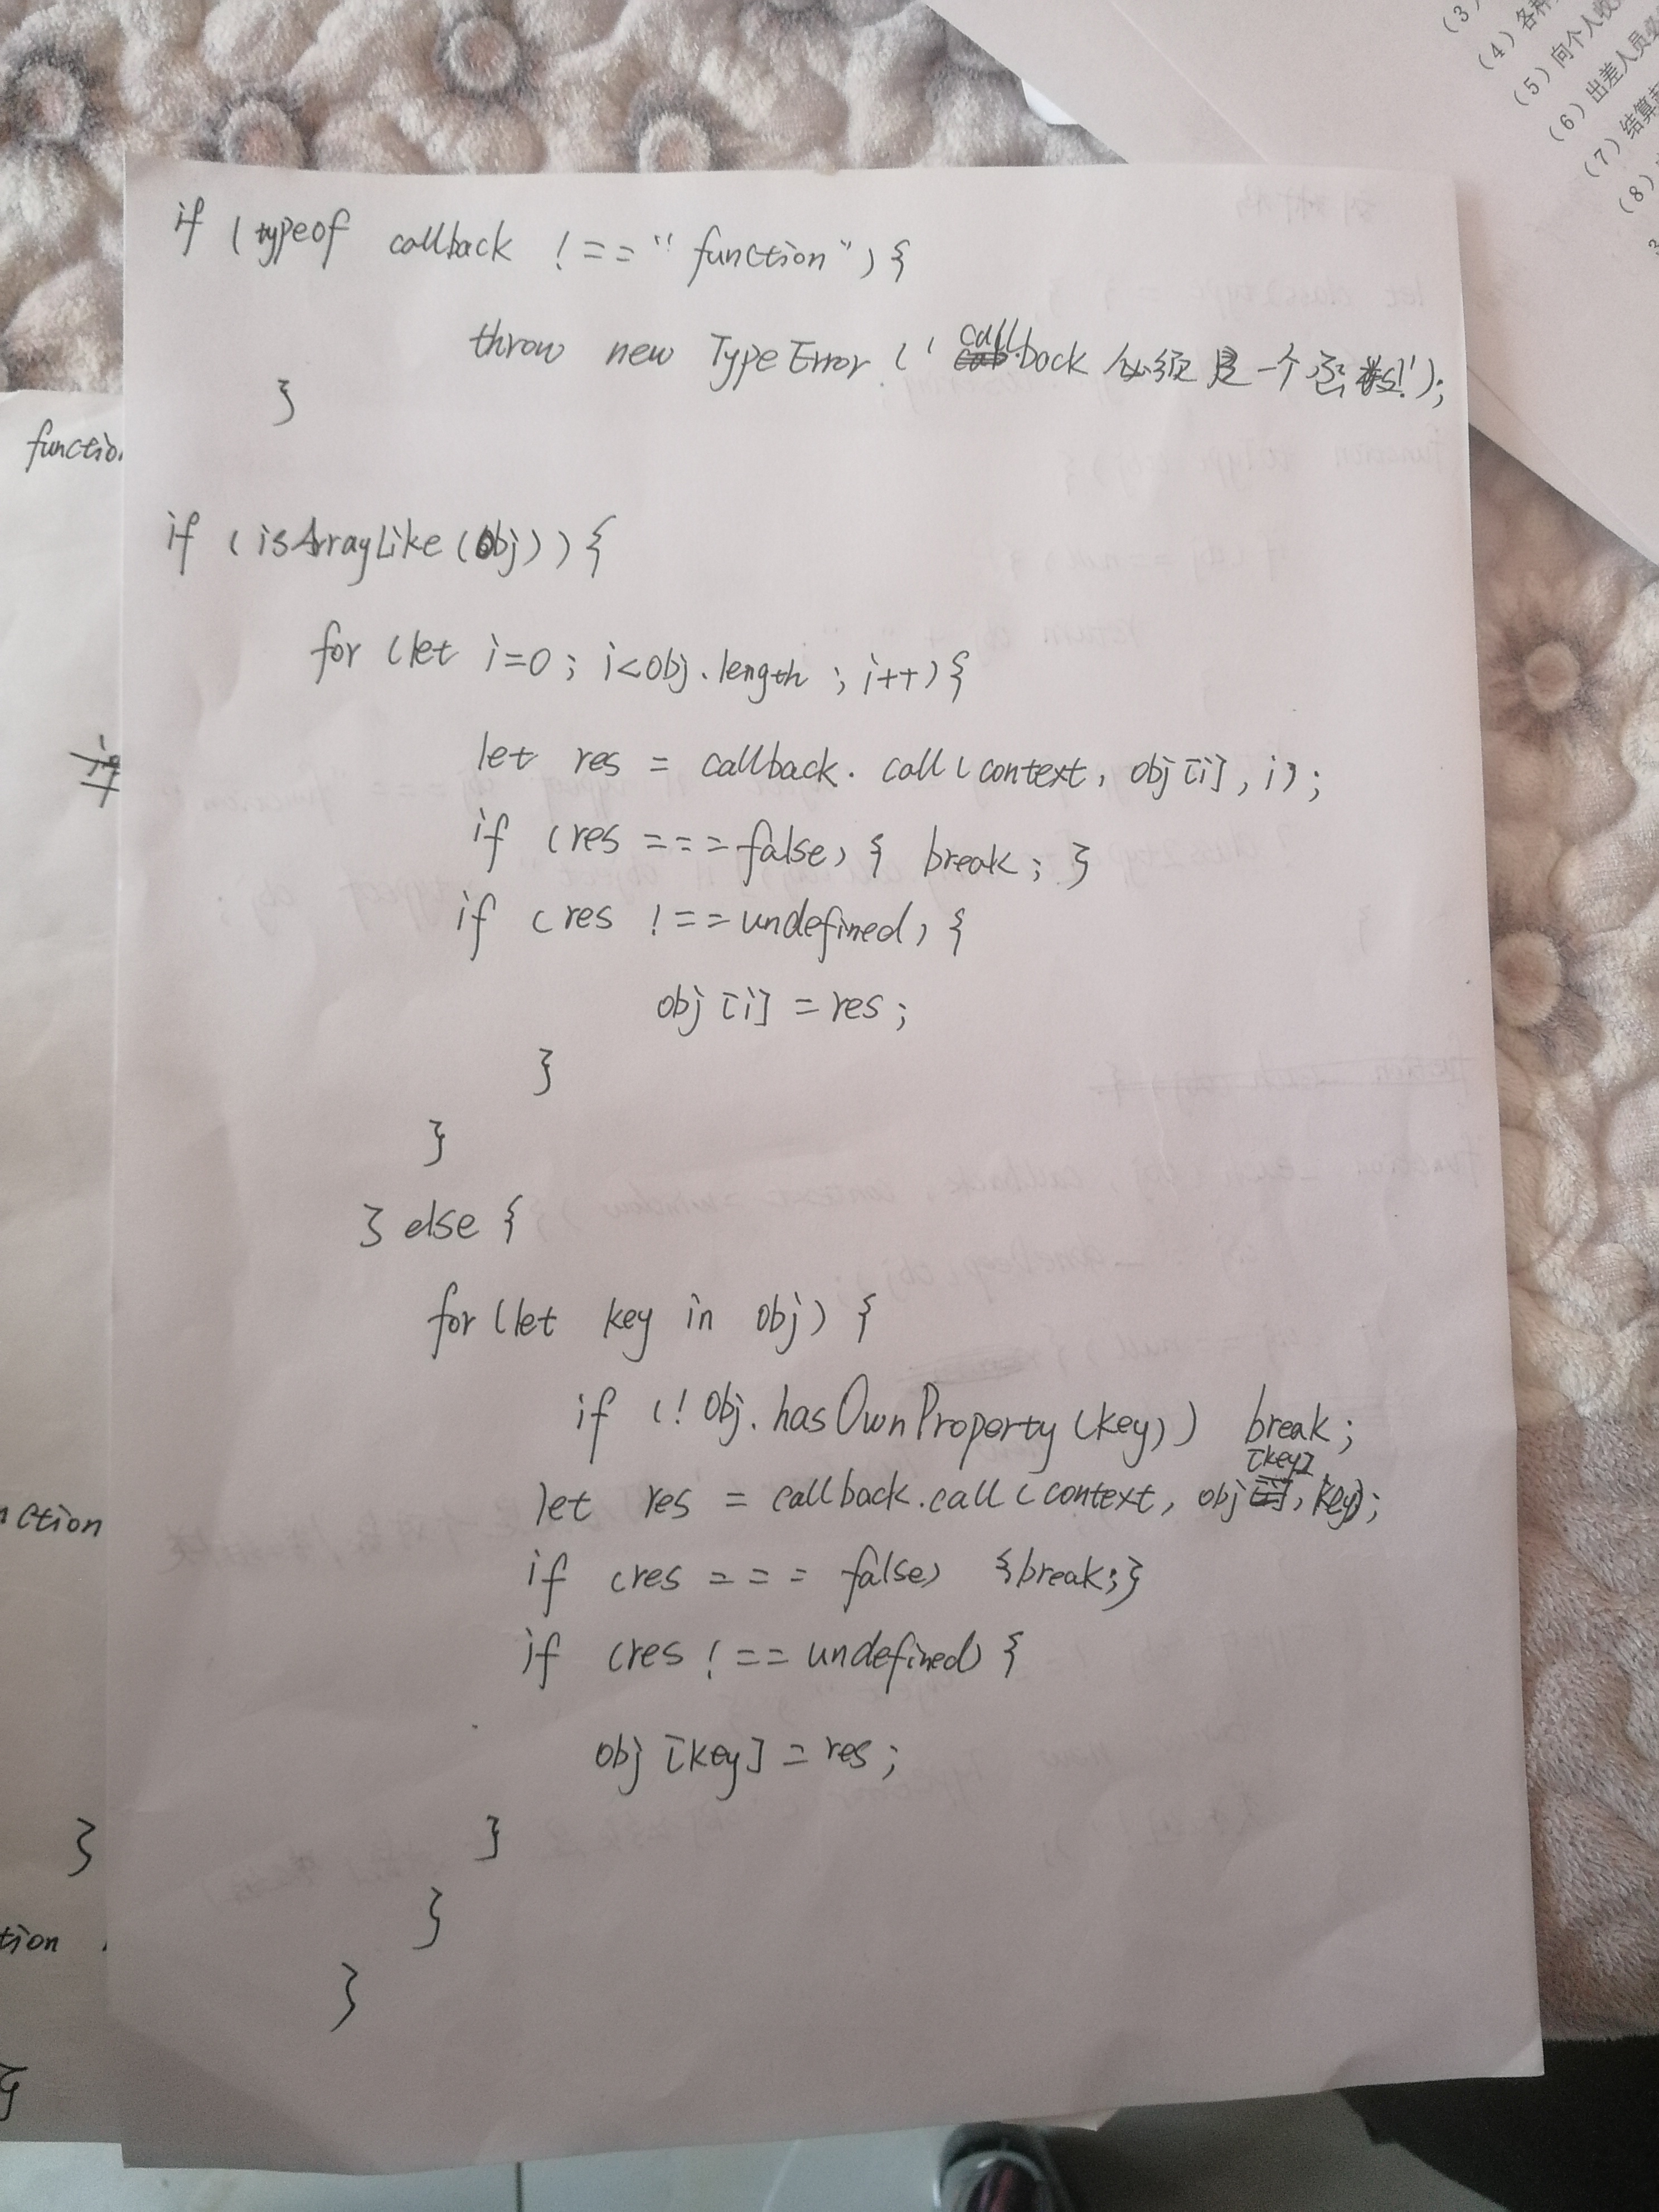 (3)
(4) 各种
(5) 向个人收
(6) 出差人员必
(7) 结算
(8)
if (typeof callback !== "function") {
throw new TypeError ('callback 必须是一个函数!');
}
if (isArrayLike(obj)) {
for (let i=0; i<obj.length; i++) {
let res = callback.call(context, obj[i], i);
if (res === false) { break; }
if (res !== undefined) {
obj[i] = res;
}
}
} else {
for (let key in obj) {
if (! obj.hasOwnProperty(key)) break;
let res = callback.call(context, obj[key], key);
if (res === false) {break;}
if (res !== undefined) {
obj[key] = res;
}
}
}
functio
nction
}
tion